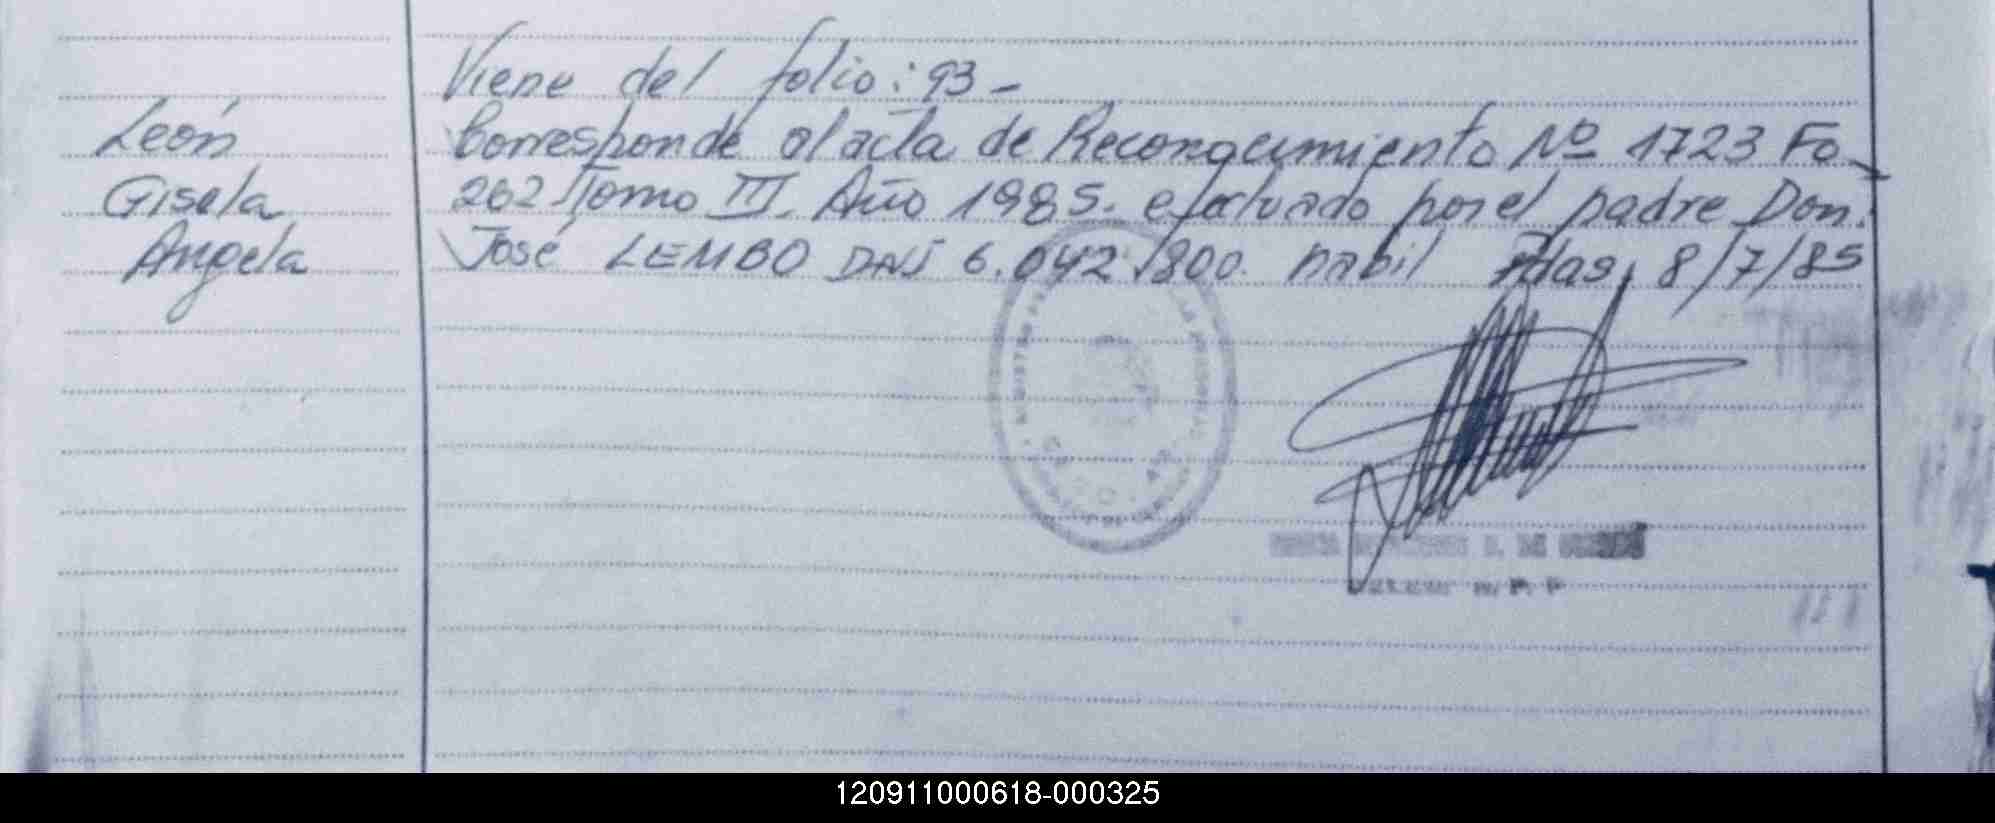 Viene del folio: 93 -
León
Corresponde al acta de Reconocimiento Nº 1723 Fo-
Gisela
262 Tomo III. Año 1985. efectuado por el padre Don.
Angela
José LEMBO DNI 6.042.800. nabil Pdas, 8/7/85
DE
M. P. P
120911000618-000325